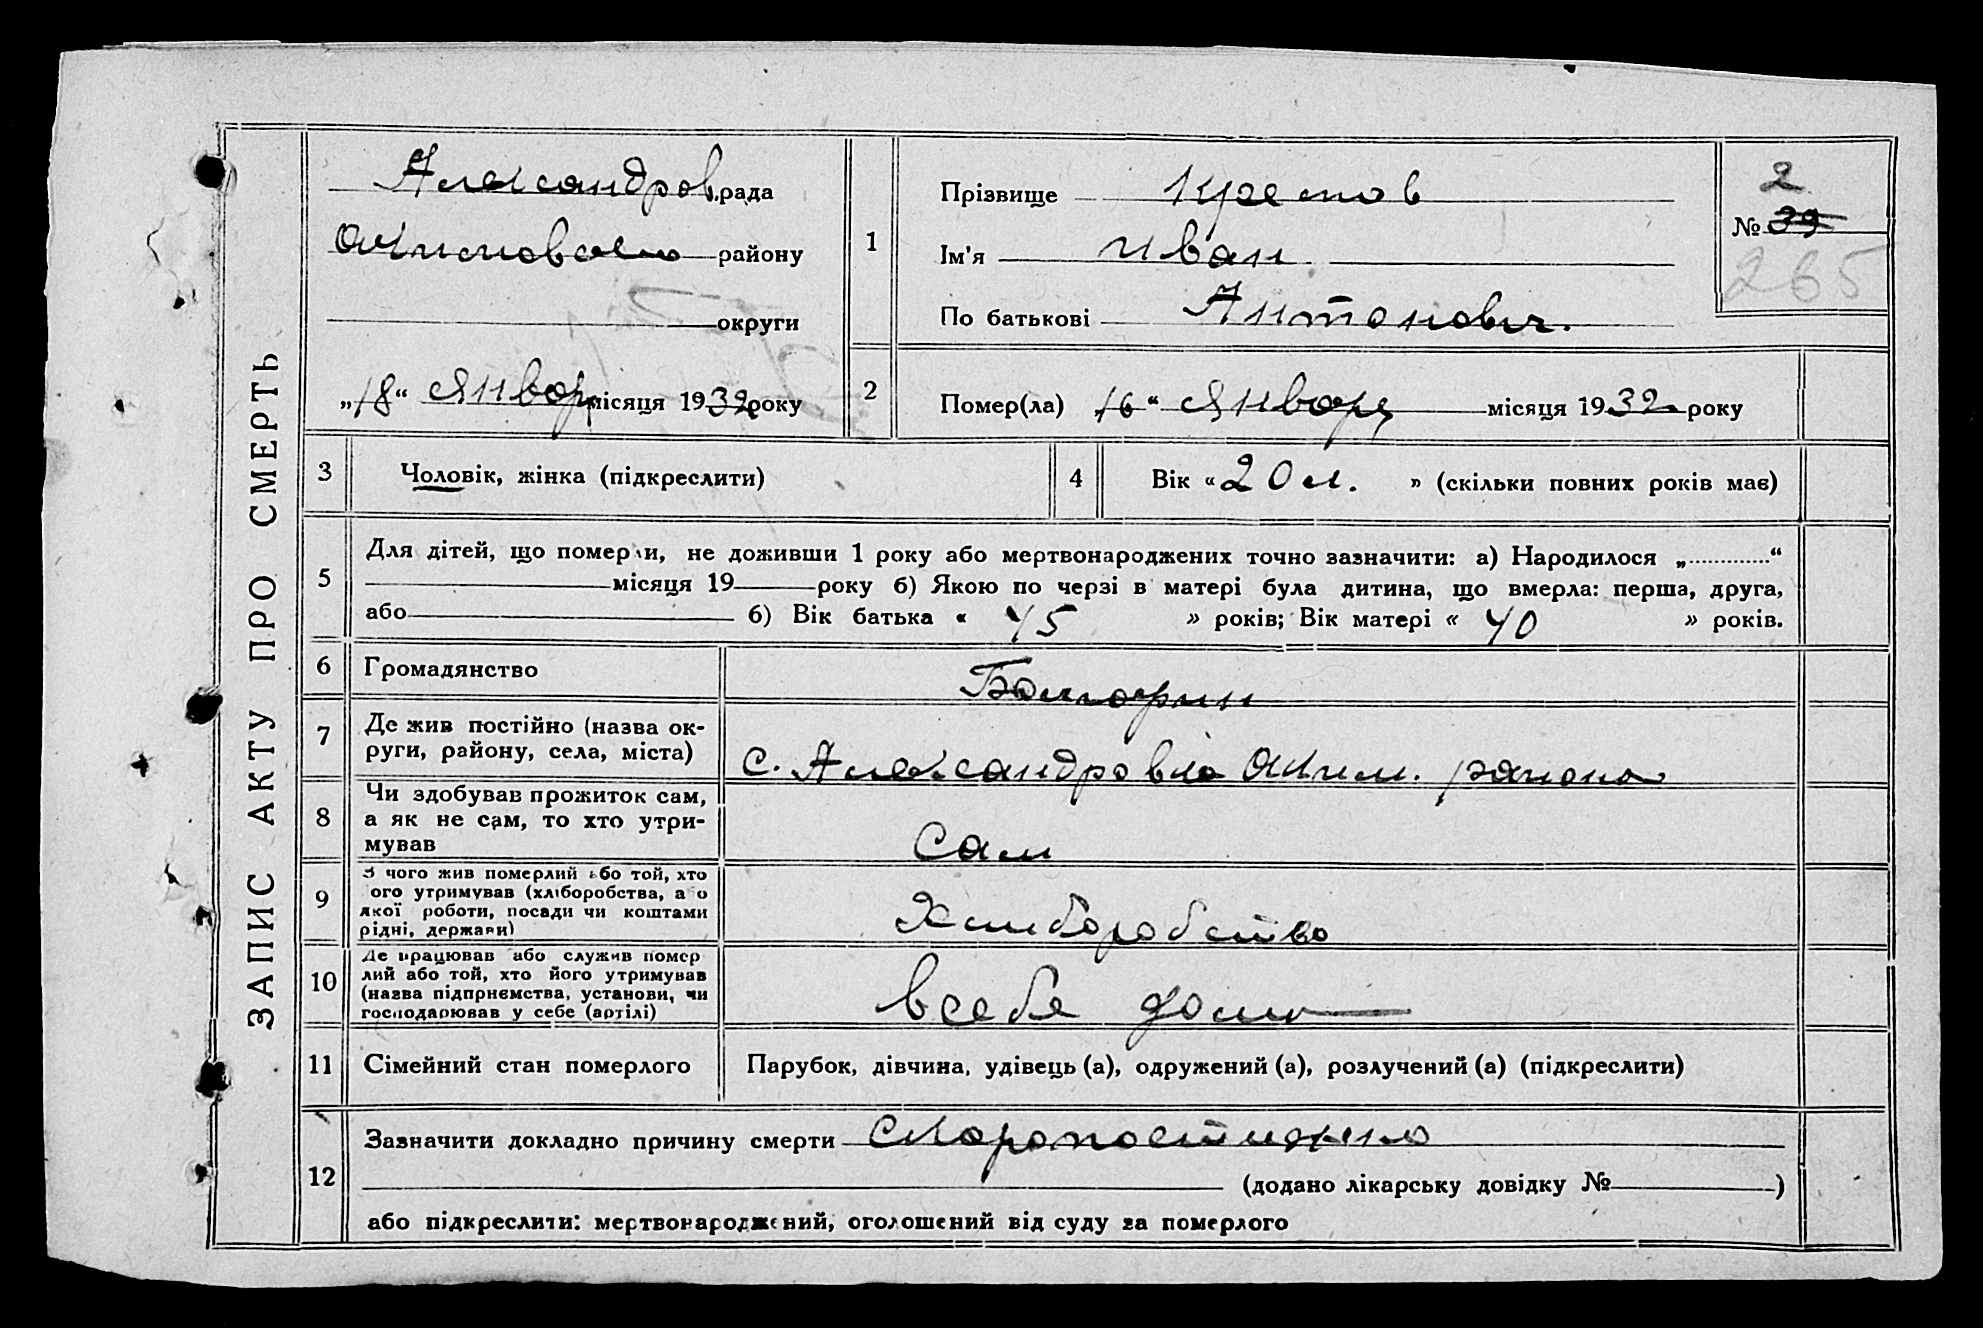 ЗАПИС АКТУ ПРО СМЕРТЬ
Александров. рада
района
округи
„18“ Январ місяця 1932 року
1
Прізвище Крестов
Ім'я Иван
По батькові Антонович.
2
№ 39
265
2
Помер(ла) 16“ Января місяця 1932 року
3
Чоловік, жінка (підкреслити)
4
Вік «20 л. » (скільки повних років має)
5
Для дітей, що померли, не доживши 1 року або мертвонароджених точно зазначити: а) Народилося „.............“
місяця 19 року б) Якою по черзі в матері була дитина, що вмерла: перша, друга,
або б) Вік батька « 45 » років; Вік матері « 40 » років.
6
Громадянство
Болгарин
7
Де жив постійно (назва ок-
руги, району, села, міста)
с. Александровка Аким. района
8
Чи здобував прожиток сам,
а як не сам, то хто утри-
мував
Сам
9
З чого жив померлий або той, хто
ого утримував (хліборобства, або
якої роботи, посади чи коштами
рідні, держави)
Хлиборобство
10
Де працював або служив помер
лий або той, хто його утримував
(назва підприємства, установи, чи
господарював у себе (артілі)
в себе дома
11
Сімейний стан померлого
Парубок, дівчина, удівець (а), одружений (а), розлучений (а) (підкреслити)
12
Зазначити докладно причину смерти Скоропостижно
(додано лікарську довідку № )
або підкреслити: мертвонароджений, оголошений від суду за померлого